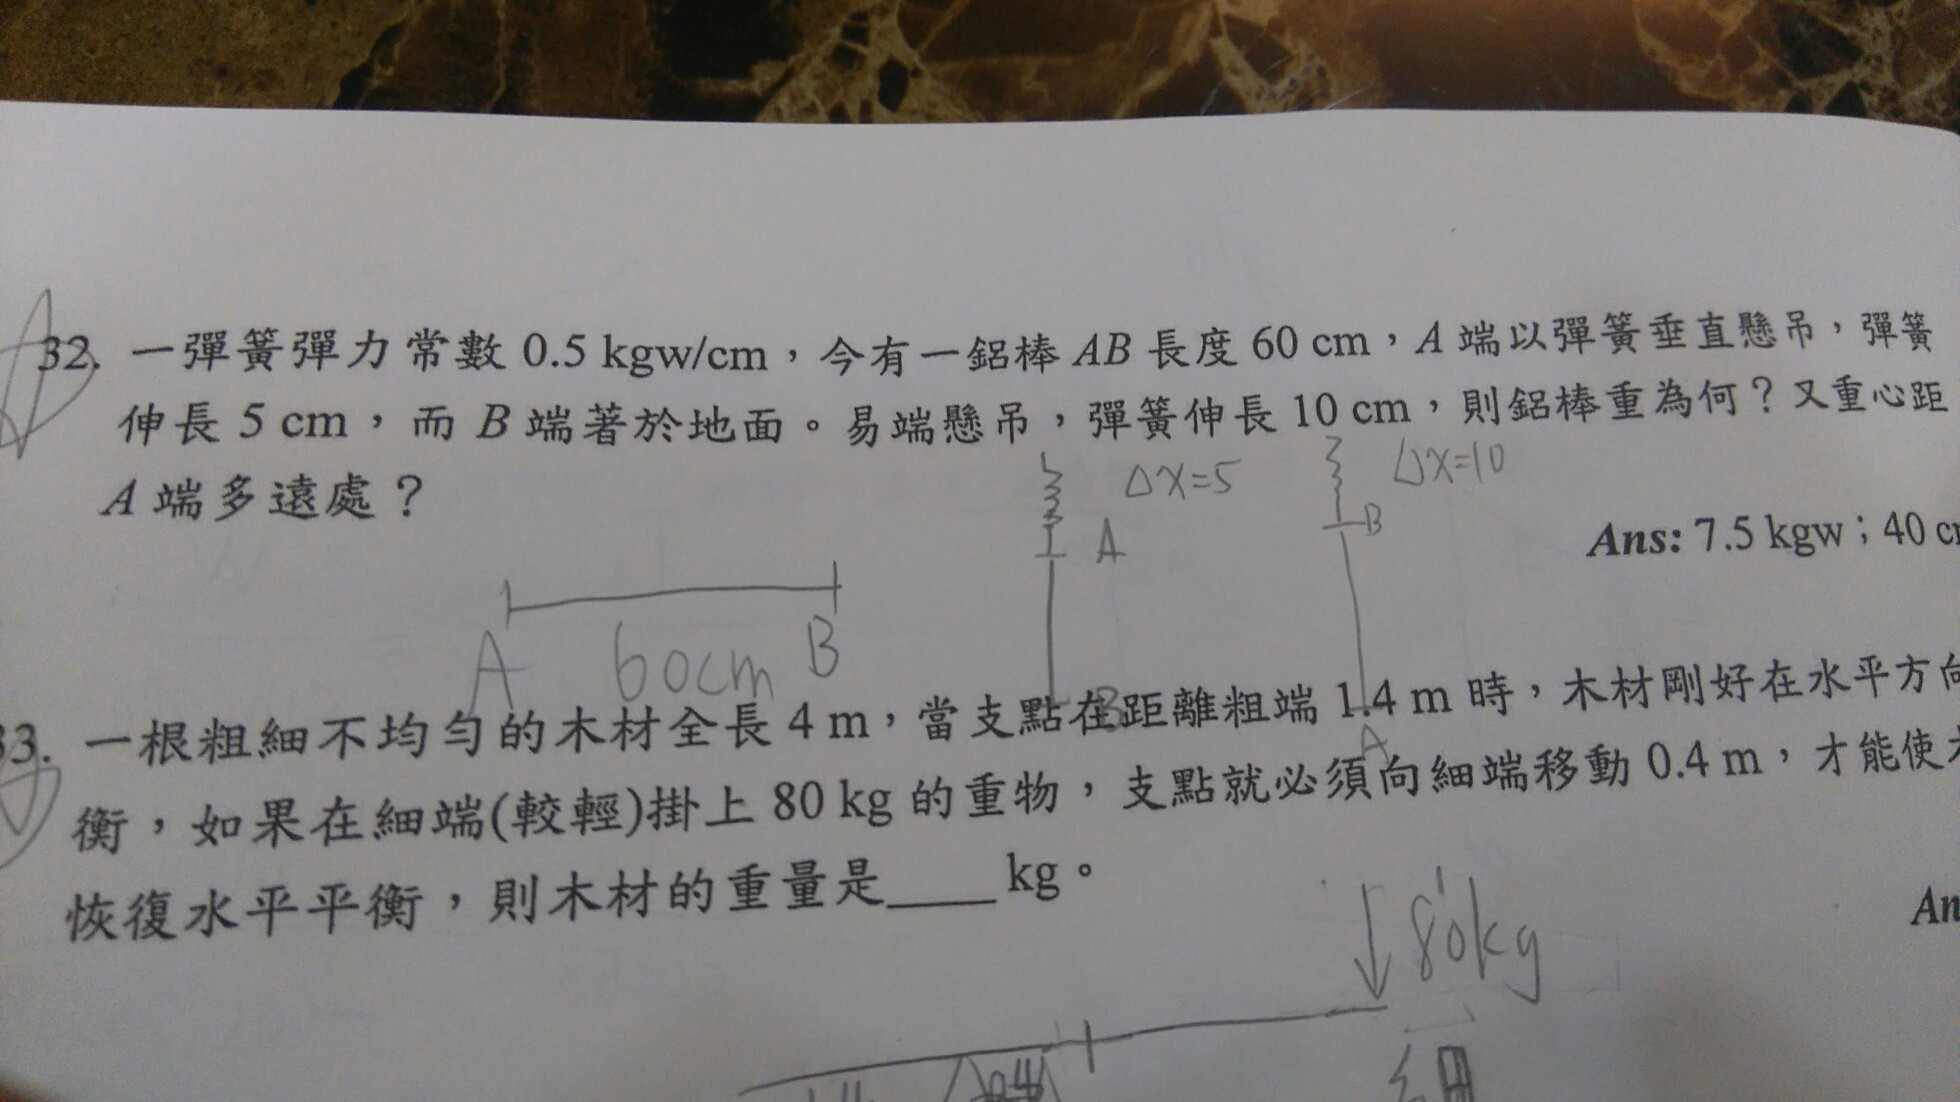 32. 一彈簧彈力常數 0.5 kgw/cm，今有一鋁棒 AB 長度 60 cm，A 端以彈簧垂直懸吊，彈簧
伸長 5 cm，而 B 端著於地面。易端懸吊，彈簧伸長 10 cm，則鋁棒重為何？又重心距
A 端多遠處？
Δx=5
Δx=10
A
B
Ans: 7.5 kgw；40
A 60cm B
B
A
33. 一根粗細不均勻的木材全長 4 m，當支點在距離粗端 1.4 m 時，木材剛好在水平方向
衡，如果在細端(較輕)掛上 80 kg 的重物，支點就必須向細端移動 0.4 m，才能使
恢復水平平衡，則木材的重量是____ kg。
80kg
0.4
細